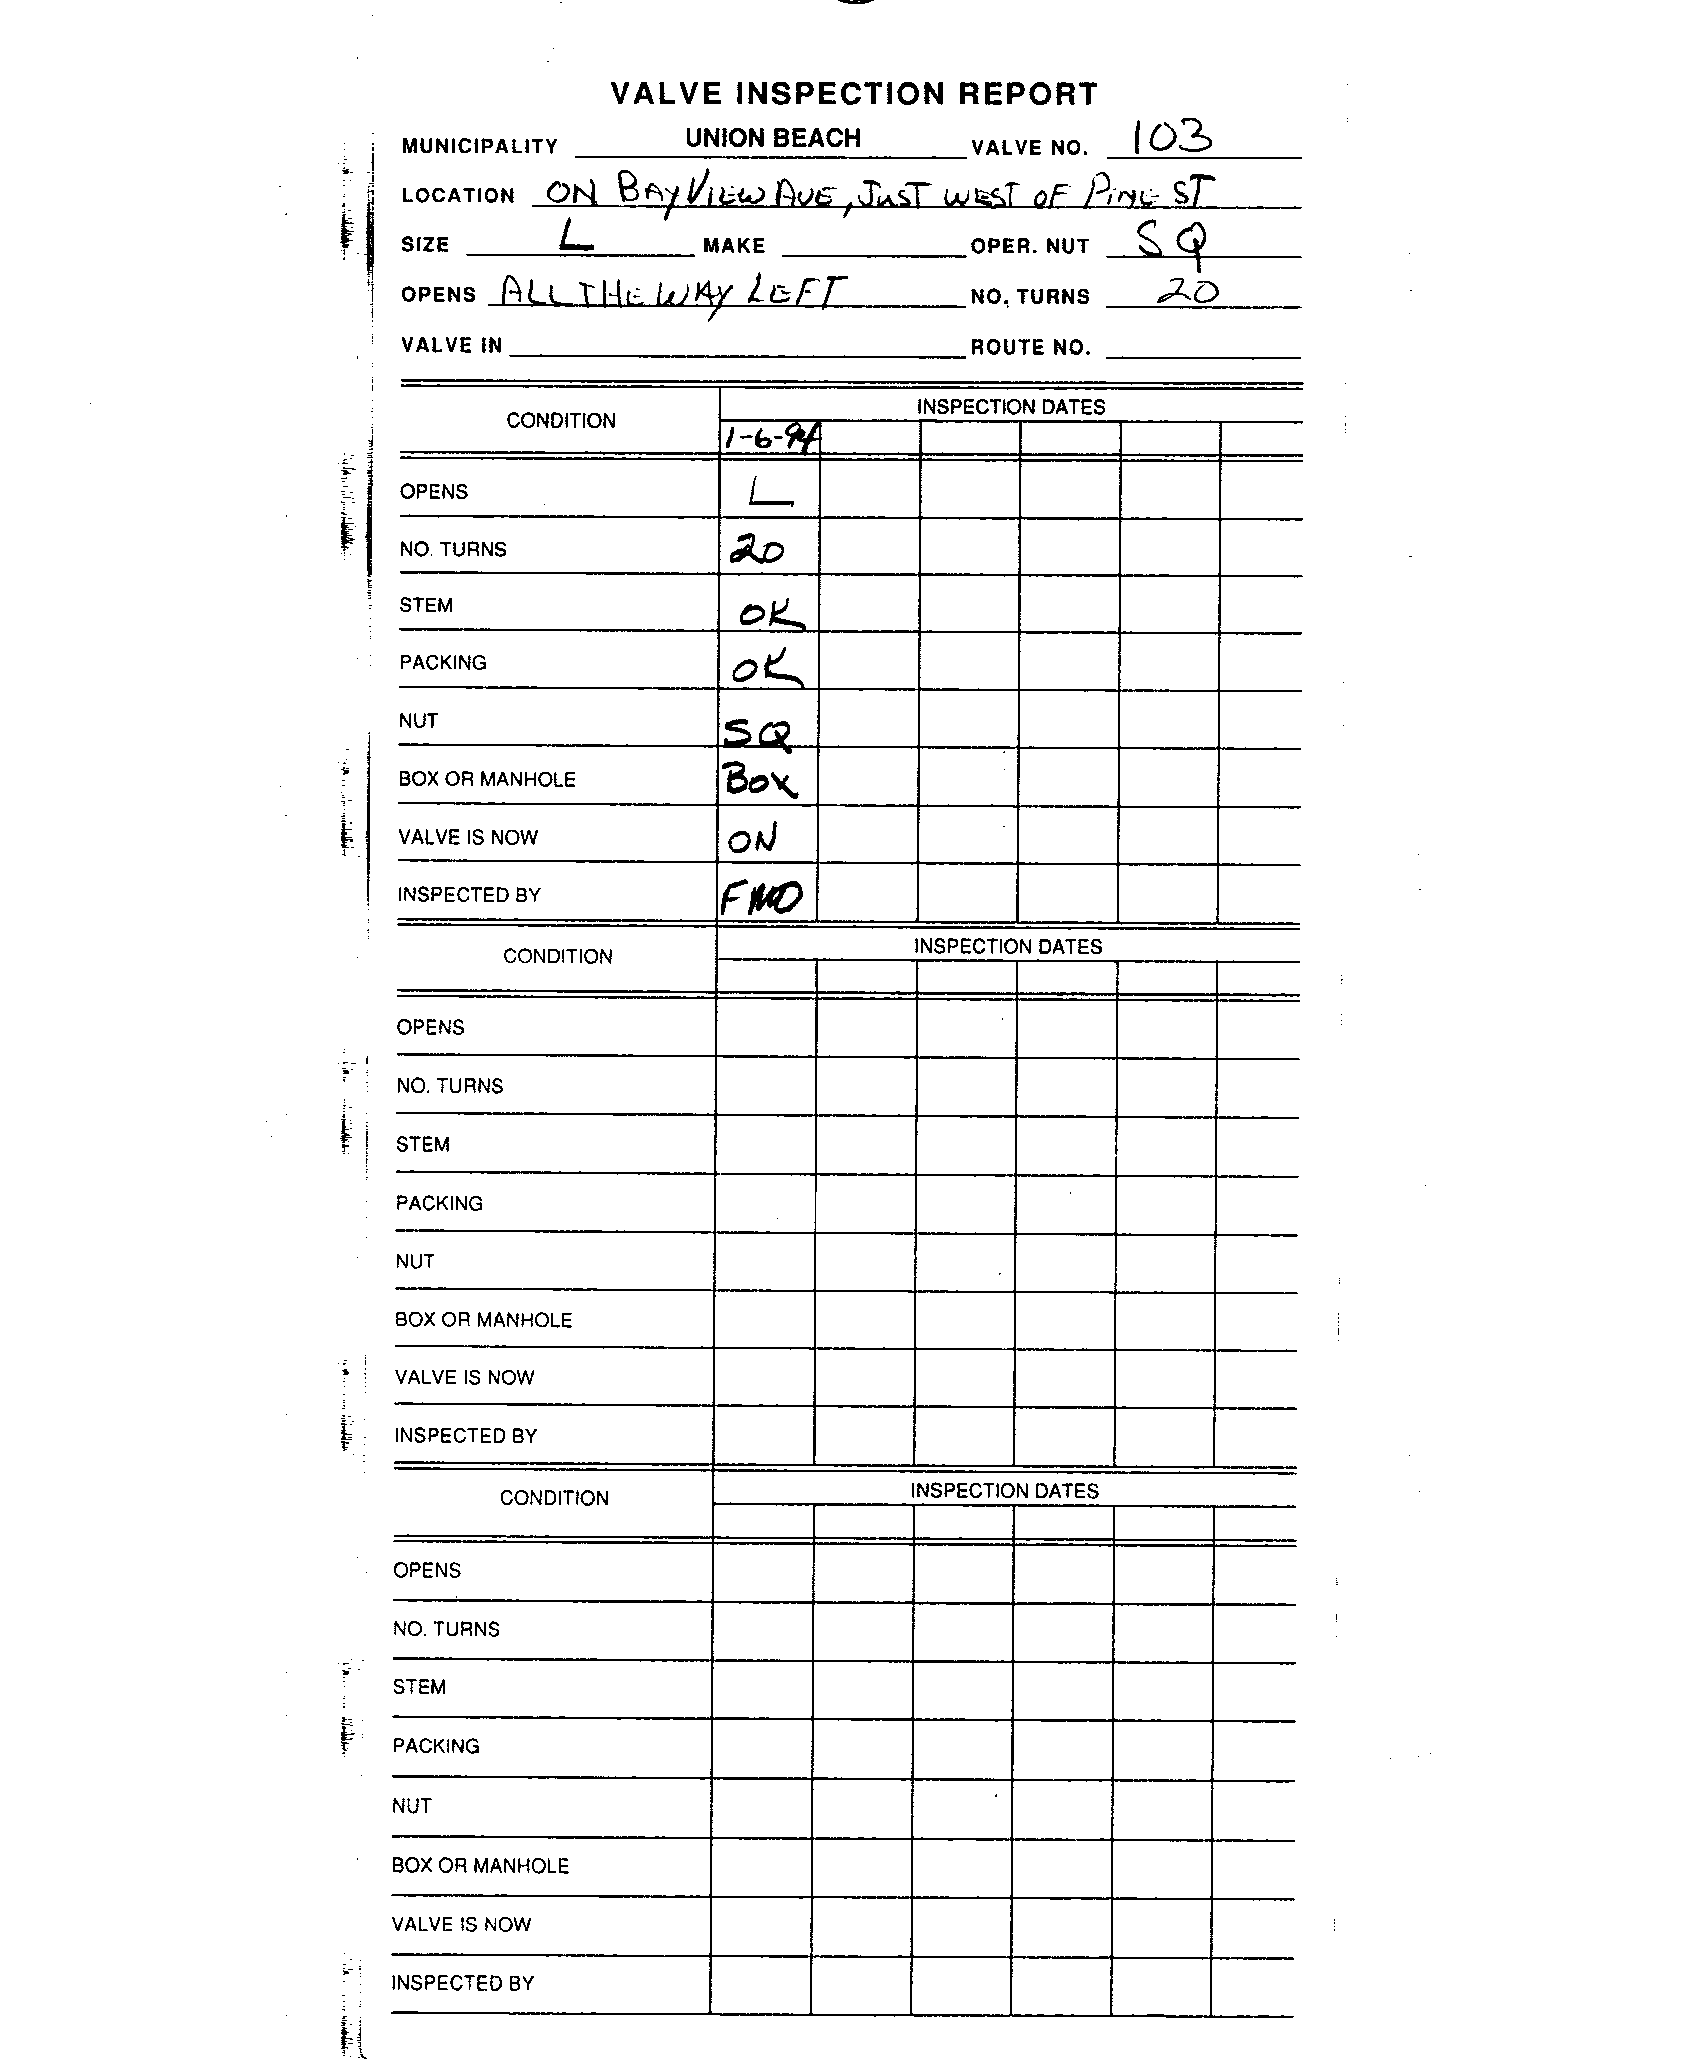 VALVE INSPECTION REPORT
MUNICIPALITY UNION BEACH VALVE NO. 103
LOCATION ON BAYVIEW AVE, JUST WEST OF PINE ST
SIZE L MAKE OPER. NUT SQ
OPENS ALL THE WAY LEFT NO. TURNS 20
VALVE IN ROUTE NO.
CONDITION INSPECTION DATES
1-6-94
OPENS L
NO. TURNS 20
STEM OK
PACKING OK
NUT SQ
BOX OR MANHOLE BOX
VALVE IS NOW ON
INSPECTED BY FMO
CONDITION INSPECTION DATES
OPENS
NO. TURNS
STEM
PACKING
NUT
BOX OR MANHOLE
VALVE IS NOW
INSPECTED BY
CONDITION INSPECTION DATES
OPENS
NO. TURNS
STEM
PACKING
NUT
BOX OR MANHOLE
VALVE IS NOW
INSPECTED BY